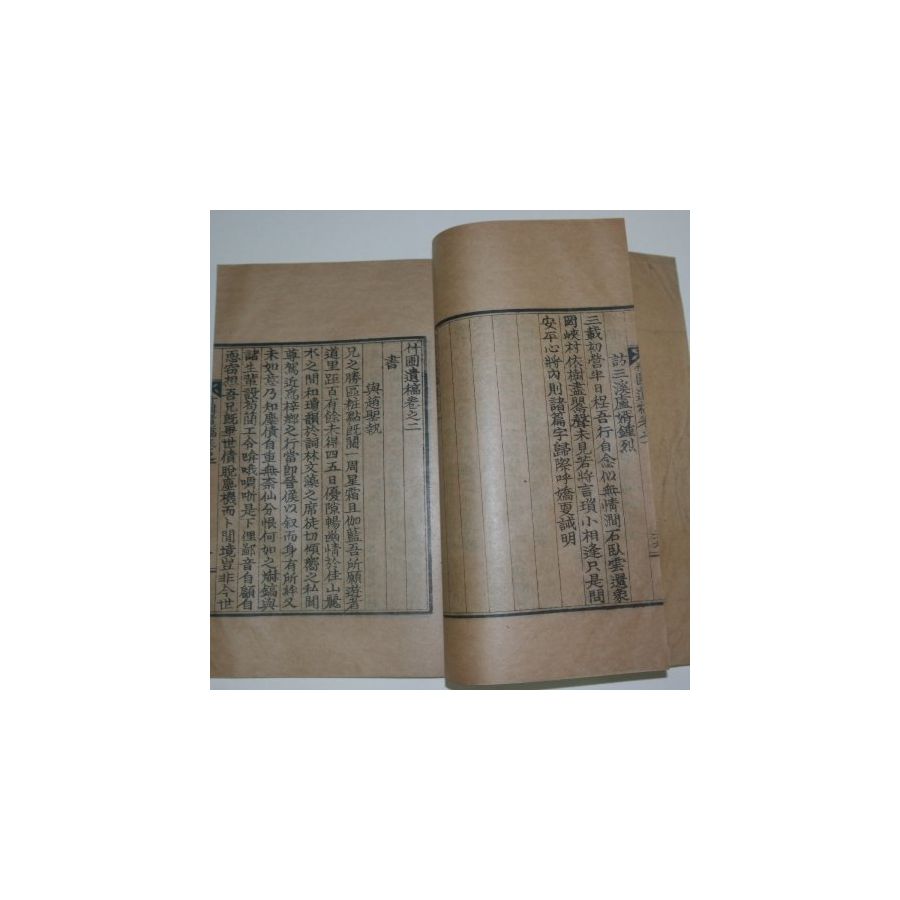 訪三溪盧婿鍾烈
三載初營半日程吾行自念似無情澗石臥雲還
峽村依樹盡鸎聲未見若將言瑣小相逢只是問
安平心將內則諸篇字歸際呼嬌更誠明
竹圃遺稿卷之二
書
與趙聖執
兄之勝區粧點旣聞一周星霜且伽藍吾所願遊者
道里距百有餘未得四五日優隙暢幽情於佳山麗
水之間和瓊韻於詞林文藻之席徒切傾嚮之私聞
尊駕近爲梓鄕之行當卽晉候以叙而身有所絆又
未如意乃知塵債自重無柰仙分恨何如之嶰鎬與
諸生輩設芻簡工令喰哦啁哳是下俚鄙音自顧自
憑窃想吾兄旣畢世債脫塵機而卜閒境豈非今世